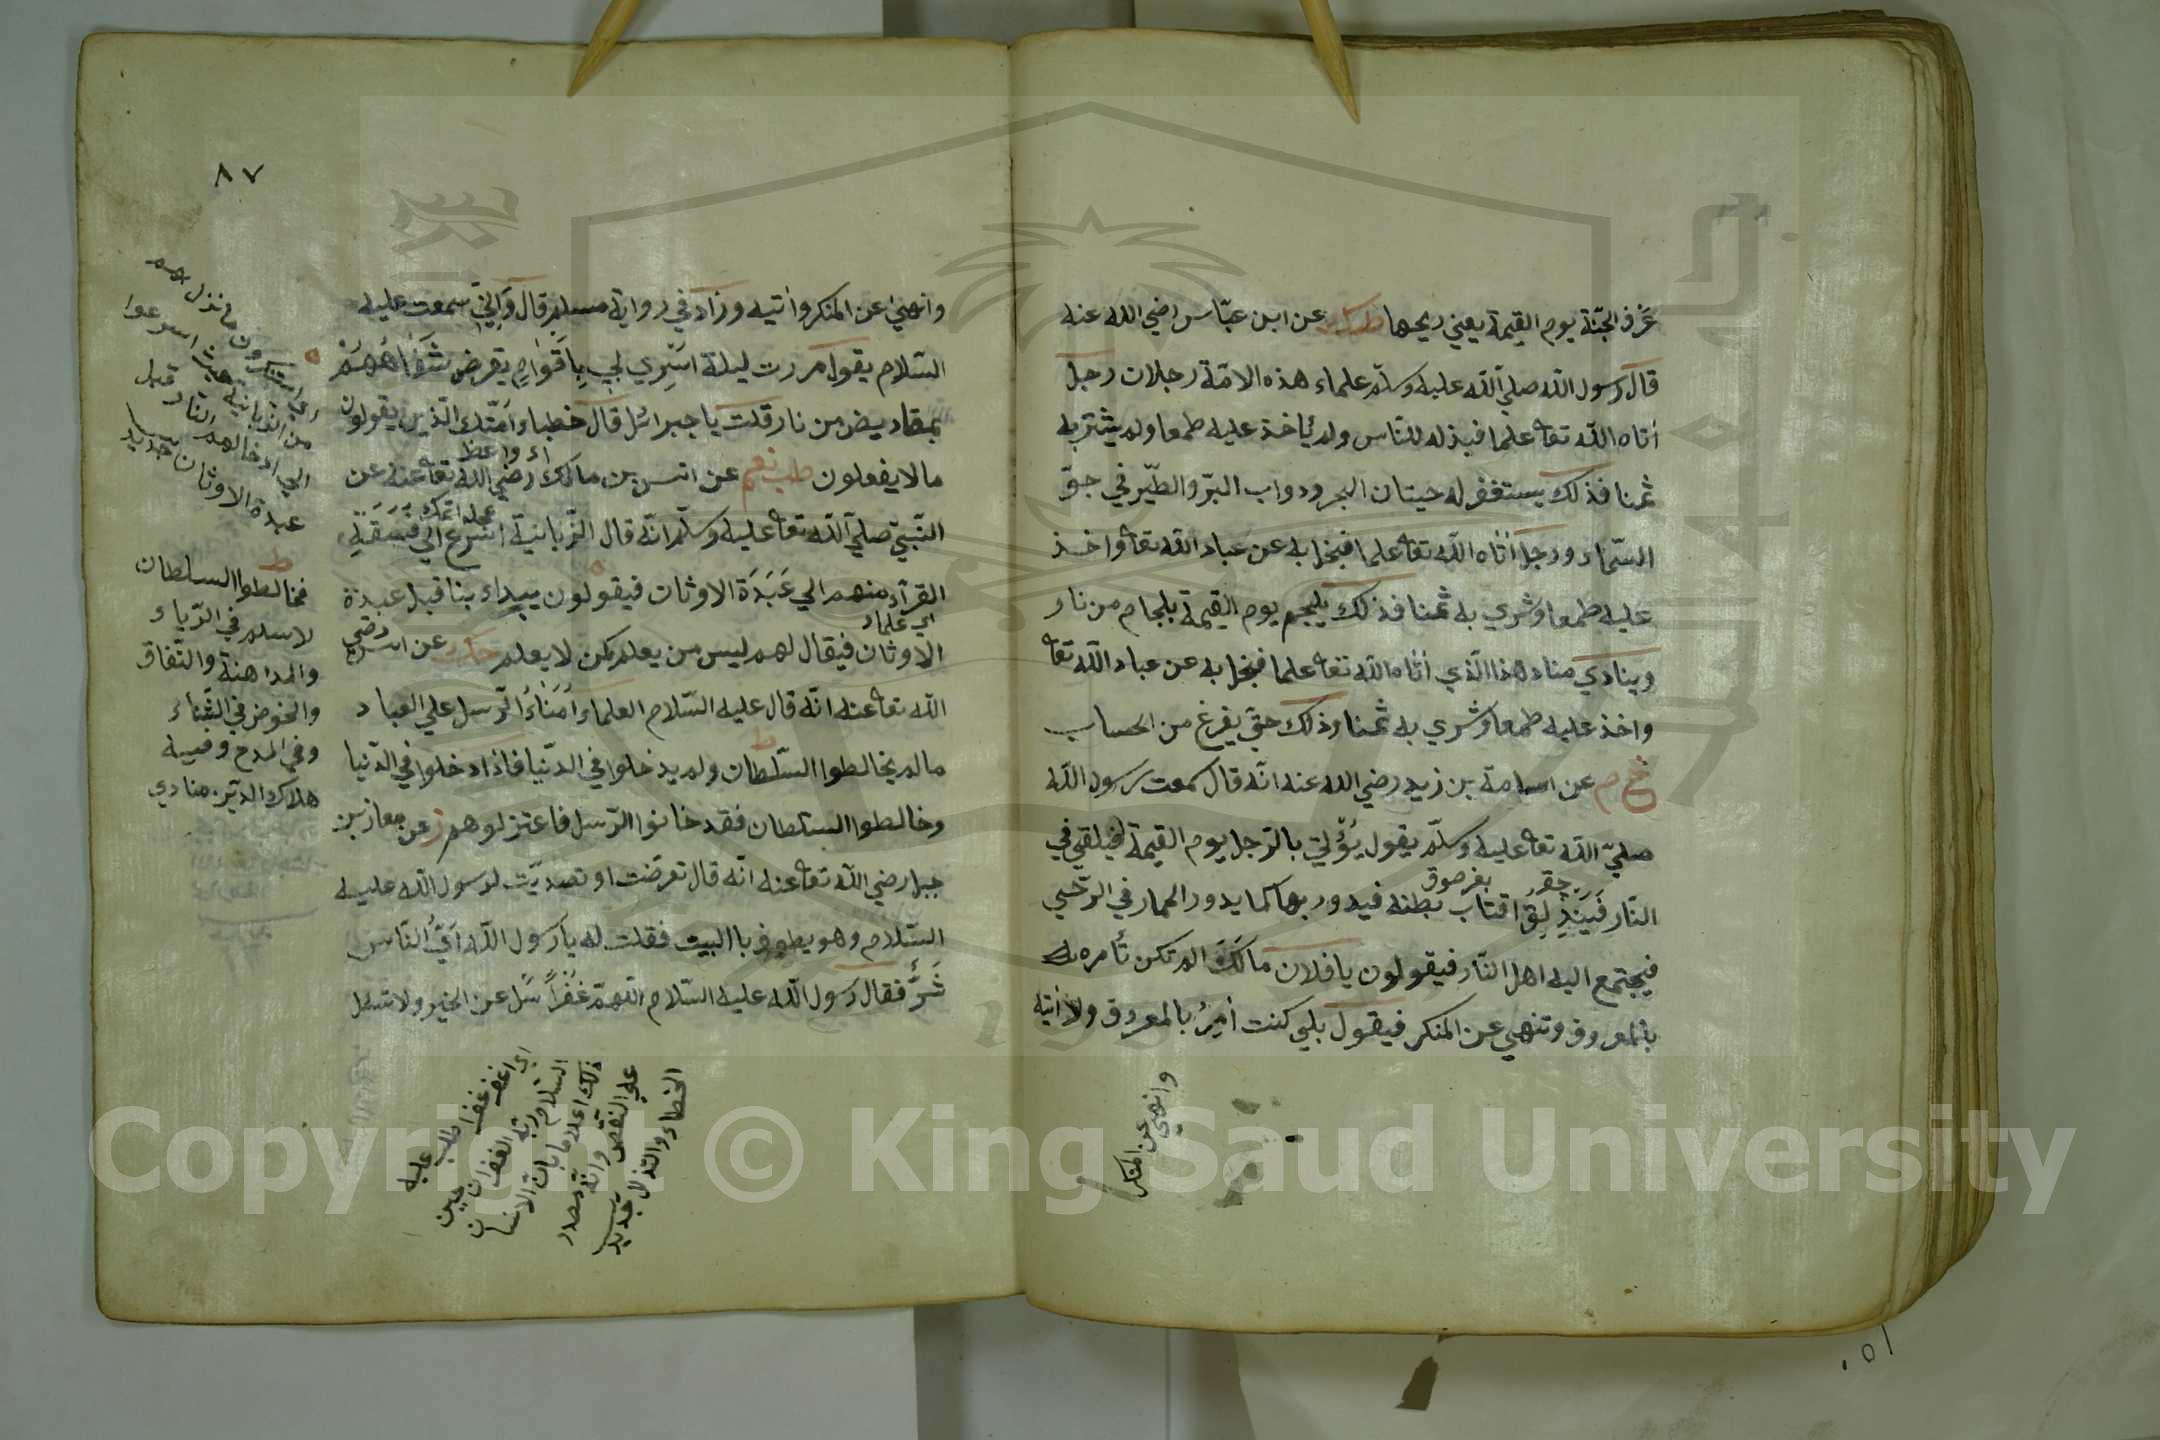 عَرْف الجنّة يوم القيمة يعني ريحها عن ابن عبّاس رضي الله عنه
قال رسول الله صلي الله عليه وسلم علماء هذه الامّة رجلان رجل
أتاه الله تعا علما فبذله للنّاس ولم يأخذ عليه طمعا ولم يشتر به
ثمنا فذلك يستغفر له حيتان البحر ودواب البرّ والطّير في جوّ
السّماء ورجل أتاه الله تعا علما فبخل به عن عباد الله تعا واخذ
عليه طمعا وشري به ثمنا فذلك يلجم يوم القيمة بلجام من نار
وينادي مناد هذا الّذي أتاه الله تعا علما فبخل به عن عباد الله تعا
واخذ عليه طمعا وشري به ثمنا وذلك حتّي يفرغ من الحساب
خ م عن اسامة بن زيد رضي الله عنه انّه قال سمعت رسول الله
صلّي الله تعا عليه وسلّم يقول يُؤْتي بالرّجل يوم القيمة فيلقي في
النّار فَيَنْدَلِقُ اقتاب بطنه فيدور بها كما يدور الحمار في الرّحي
فيجتمع اليه اهل النّار فيقولون يا فلان مَا لَكَ الم تكن تأمر
بالمعروف وتنهي عن المنكر فيقول بلي كنت أمِرُ بالمعروف ولا أتيه
وانهي عن المنكر
٨٧
وانهيٰ عن المنكر وأتيه وزاد في رواية مسلم قال وَاِنّي سمعت عليه
السّلام يقول مررت ليلة اسْرِي بي بِاَقْوَامٍ يقرض شَفَاهُهُمْ
بمقاريض من نار قلت يا جبرائل قال خطباء اُمّتك الّذين يقولون
اي واعظ
ما لا يفعلون طب نعم عن انس بن مالك رضي الله تعا عنه عن
النّبيّ صلي الله تعا عليه وسلّم انّه قال الزّبانية اسْرع الي فَسَقَةِ
القرّاء منهم الي عَبَدَة الاوثان فيقولون يبداء بنا قبل عبدة
اي علماء
الاوثان فيقال لهم ليس من يعلم كمن لا يعلم عن انس رضي
الله تعا عنه انّه قال عليه السّلام العلماء اُمَنَاءُ الرّسل علي العباد
ما لم يخالطوا السّلطان ولم يدخلوا في الدّنيا فاذا دخلوا في الدّنيا
وخالطوا السلطان فقد خانوا الرّسل فاعتزلوهم ز عن معاز بن
جبل رضي الله تعا عنه انّه قال تعرّضت او تصديّت لرسول الله عليه
السّلام وهو يطوف باالبيت فقلت له يا رسول الله اَيُّ النّاس
شَرٌّ فقال رسول الله عليه السّلام اللهمّ غَفْراً سَل عن الخير ولا تسئل
من الزبانية حيث اسرعوا
الي ادخالهم النّار قبل
عبدة الاوثان جديد
فخالطوا السلطان
لا سلم في الرّياء
والمداهنة والنّفاق
والخوض في الثّناء
وفي المدح وفيه
هلاك الدّين مناوي
اي اغفر غفرا طلب عليه
السّلام ربّه الغفران حين
ذلك اعلاما بان الانسان
علي النّقص وانّه مصدر
الخطاء والتذلل جديد